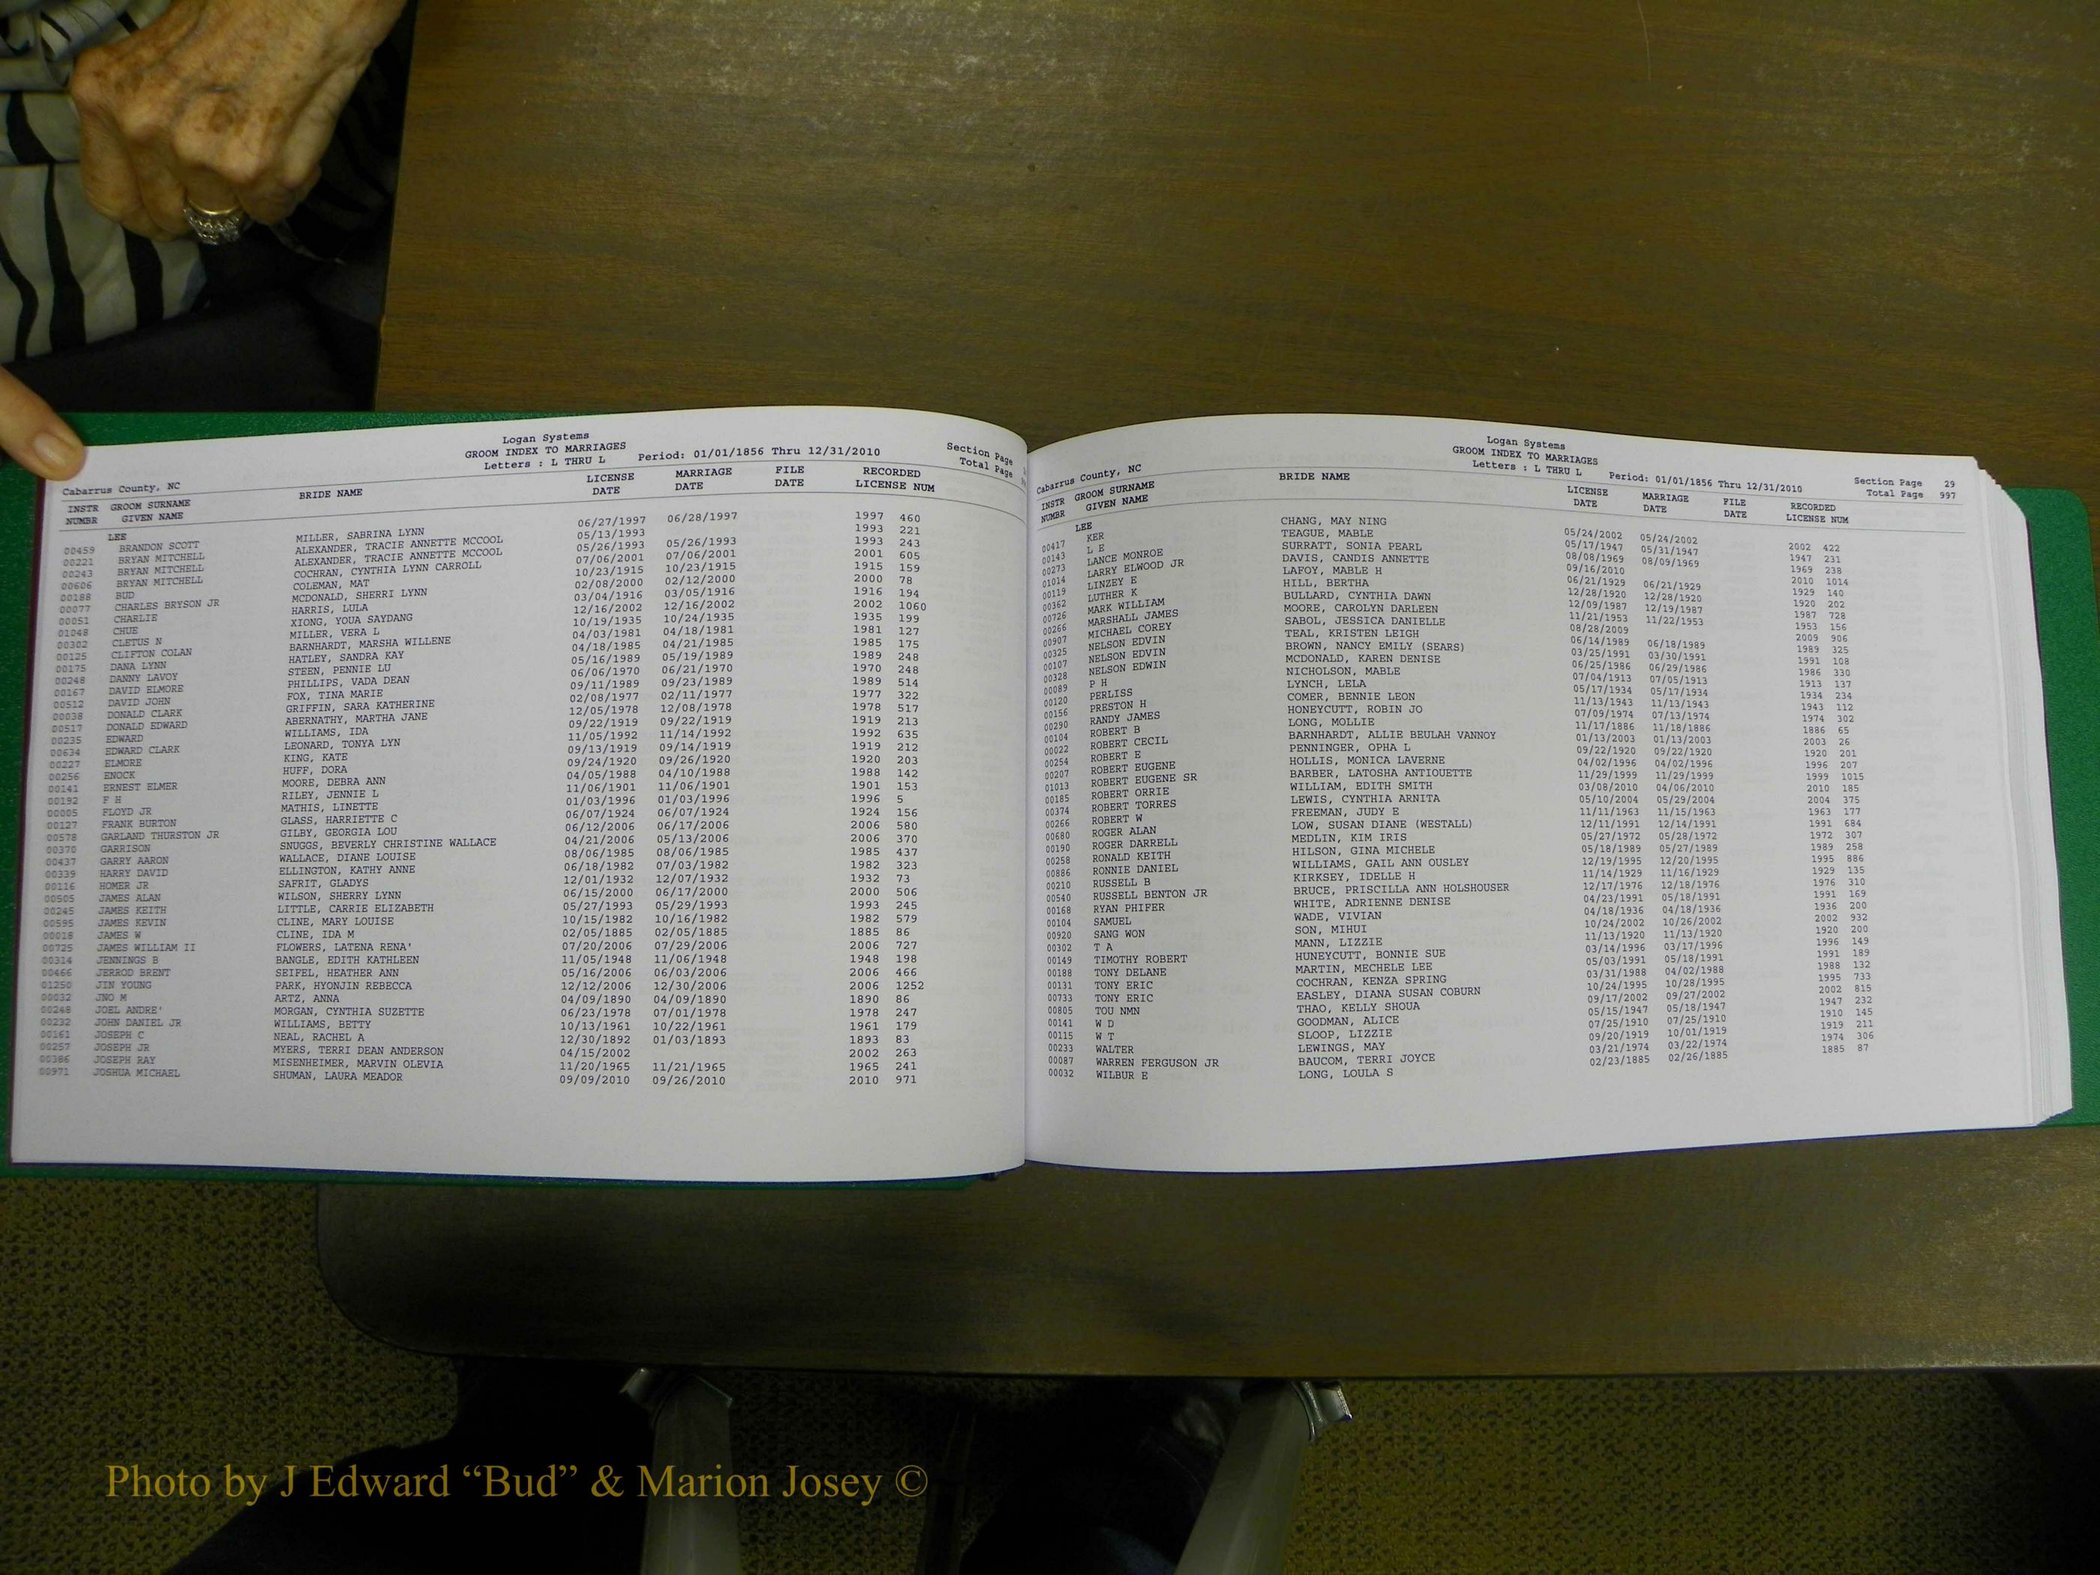 Logan Systems
GROOM INDEX TO MARRIAGES
Letters : L THRU L Period: 01/01/1856 Thru 12/31/2010
Section Page
Total Page
Cabarrus County, NC
INSTR GROOM SURNAME BRIDE NAME LICENSE MARRIAGE FILE RECORDED
NUMBR GIVEN NAME DATE DATE DATE LICENSE NUM
LEE
00459 BRANDON SCOTT MILLER, SABRINA LYNN 06/27/1997 06/28/1997 1997 460
00221 BRYAN MITCHELL ALEXANDER, TRACIE ANNETTE MCCOOL 05/13/1993 1993 221
00243 BRYAN MITCHELL ALEXANDER, TRACIE ANNETTE MCCOOL 05/26/1993 05/26/1993 1993 243
00606 BRYAN MITCHELL COCHRAN, CYNTHIA LYNN CARROLL 07/06/2001 07/06/2001 2001 605
00188 BUD COLEMAN, MAT 10/23/1915 10/23/1915 1915 159
00077 CHARLES BRYSON JR MCDONALD, SHERRI LYNN 02/08/2000 02/12/2000 2000 78
00051 CHARLIE HARRIS, LULA 03/04/1916 03/05/1916 1916 194
01048 CHUE XIONG, YOUA SAYDANG 12/16/2002 12/16/2002 2002 1060
00302 CLETUS N MILLER, VERA L 10/19/1935 10/24/1935 1935 199
00125 CLIFTON COLAN BARNHARDT, MARSHA WILLENE 04/03/1981 04/18/1981 1981 127
00175 DANA LYNN HATLEY, SANDRA KAY 04/18/1985 04/21/1985 1985 175
00248 DANNY LAVOY STEEN, PENNIE LU 05/16/1989 05/19/1989 1989 248
00167 DAVID ELMORE PHILLIPS, VADA DEAN 06/06/1970 06/21/1970 1970 248
00512 DAVID JOHN FOX, TINA MARIE 09/11/1989 09/23/1989 1989 514
00038 DONALD CLARK GRIFFIN, SARA KATHERINE 02/08/1977 02/11/1977 1977 322
00517 DONALD EDWARD ABERNATHY, MARTHA JANE 12/05/1978 12/08/1978 1978 517
00235 EDWARD WILLIAMS, IDA 09/22/1919 09/22/1919 1919 213
00634 EDWARD CLARK LEONARD, TONYA LYN 11/05/1992 11/14/1992 1992 635
00227 ELMORE KING, KATE 09/13/1919 09/14/1919 1919 212
00256 ENOCK HUFF, DORA 09/24/1920 09/26/1920 1920 203
00141 ERNEST ELMER MOORE, DEBRA ANN 04/05/1988 04/10/1988 1988 142
00192 F H RILEY, JENNIE L 11/06/1901 11/06/1901 1901 153
00005 FLOYD JR MATHIS, LINETTE 01/03/1996 01/03/1996 1996 5
00127 FRANK BURTON GLASS, HARRIETTE C 06/07/1924 06/07/1924 1924 156
00578 GARLAND THURSTON JR GILBY, GEORGIA LOU 06/12/2006 06/17/2006 2006 580
00370 GARRISON SNUGGS, BEVERLY CHRISTINE WALLACE 04/21/2006 05/13/2006 2006 370
00437 GARRY AARON WALLACE, DIANE LOUISE 08/06/1985 08/06/1985 1985 437
00339 HARRY DAVID ELLINGTON, KATHY ANNE 06/18/1982 07/03/1982 1982 323
00116 HOMER JR SAFRIT, GLADYS 12/01/1932 12/07/1932 1932 73
00505 JAMES ALAN WILSON, SHERRY LYNN 06/15/2000 06/17/2000 2000 506
00245 JAMES KEITH LITTLE, CARRIE ELIZABETH 05/27/1993 05/29/1993 1993 245
00595 JAMES KEVIN CLINE, MARY LOUISE 10/15/1982 10/16/1982 1982 579
00018 JAMES W CLINE, IDA M 02/05/1885 02/05/1885 1885 86
00725 JAMES WILLIAM II FLOWERS, LATENA RENA' 07/20/2006 07/29/2006 2006 727
00314 JENNINGS B BANGLE, EDITH KATHLEEN 11/05/1948 11/06/1948 1948 198
00466 JERROD BRENT SEIFEL, HEATHER ANN 05/16/2006 06/03/2006 2006 466
01250 JIN YOUNG PARK, HYONJIN REBECCA 12/12/2006 12/30/2006 2006 1252
00032 JNO M ARTZ, ANNA 04/09/1890 04/09/1890 1890 86
00248 JOEL ANDRE' MORGAN, CYNTHIA SUZETTE 06/23/1978 07/01/1978 1978 247
00232 JOHN DANIEL JR WILLIAMS, BETTY 10/13/1961 10/22/1961 1961 179
00161 JOSEPH C NEAL, RACHEL A 12/30/1892 01/03/1893 1893 83
00257 JOSEPH JR MYERS, TERRI DEAN ANDERSON 04/15/2002 2002 263
00386 JOSEPH RAY MISENHEIMER, MARVIN OLEVIA 11/20/1965 11/21/1965 1965 241
00971 JOSHUA MICHAEL SHUMAN, LAURA MEADOR 09/09/2010 09/26/2010 2010 971
Logan Systems
GROOM INDEX TO MARRIAGES
Letters : L THRU L Period: 01/01/1856 Thru 12/31/2010
Section Page 29
Total Page 997
Cabarrus County, NC
INSTR GROOM SURNAME BRIDE NAME LICENSE MARRIAGE FILE RECORDED
NUMBR GIVEN NAME DATE DATE DATE LICENSE NUM
LEE
00417 KER CHANG, MAY NING 05/24/2002 05/24/2002 2002 422
00143 L E TEAGUE, MABLE 05/17/1947 05/31/1947 1947 231
00273 LANCE MONROE SURRATT, SONIA PEARL 08/08/1969 08/09/1969 1969 238
01014 LARRY ELWOOD JR DAVIS, CANDIS ANNETTE 09/16/2010 2010 1014
00119 LINZEY E LAFOY, MABLE H 06/21/1929 06/21/1929 1929 140
00362 LUTHER K HILL, BERTHA 12/28/1920 12/28/1920 1920 202
00726 MARK WILLIAM BULLARD, CYNTHIA DAWN 12/09/1987 12/19/1987 1987 728
00266 MARSHALL JAMES MOORE, CAROLYN DARLEEN 11/21/1953 11/22/1953 1953 156
00907 MICHAEL COREY SABOL, JESSICA DANIELLE 08/28/2009 2009 906
00325 NELSON EDVIN TEAL, KRISTEN LEIGH 06/14/1989 06/18/1989 1989 325
00107 NELSON EDVIN BROWN, NANCY EMILY (SEARS) 03/25/1991 03/30/1991 1991 108
00328 NELSON EDWIN MCDONALD, KAREN DENISE 06/25/1986 06/29/1986 1986 330
00089 P H NICHOLSON, MABLE 07/04/1913 07/05/1913 1913 137
00120 PERLISS LYNCH, LELA 05/17/1934 05/17/1934 1934 234
00156 PRESTON H COMER, BENNIE LEON 11/13/1943 11/13/1943 1943 112
00290 RANDY JAMES HONEYCUTT, ROBIN JO 07/09/1974 07/13/1974 1974 302
00104 ROBERT B LONG, MOLLIE 11/17/1886 11/18/1886 1886 65
00022 ROBERT CECIL BARNHARDT, ALLIE BEULAH VANNOY 01/13/2003 01/13/2003 2003 26
00254 ROBERT E PENNINGER, OPHA L 09/22/1920 09/22/1920 1920 201
00207 ROBERT EUGENE HOLLIS, MONICA LAVERNE 04/02/1996 04/02/1996 1996 207
01013 ROBERT EUGENE SR BARBER, LATOSHA ANTIOUETTE 11/29/1999 11/29/1999 1999 1015
00185 ROBERT ORRIE WILLIAM, EDITH SMITH 03/08/2010 04/06/2010 2010 185
00374 ROBERT TORRES LEWIS, CYNTHIA ARNITA 05/10/2004 05/29/2004 2004 375
00266 ROBERT W FREEMAN, JUDY E 11/11/1963 11/15/1963 1963 177
00680 ROGER ALAN LOW, SUSAN DIANE (WESTALL) 12/11/1991 12/14/1991 1991 684
00190 ROGER DARRELL MEDLIN, KIM IRIS 05/27/1972 05/28/1972 1972 307
00258 RONALD KEITH HILSON, GINA MICHELE 05/18/1989 05/27/1989 1989 258
00886 RONNIE DANIEL WILLIAMS, GAIL ANN OUSLEY 12/19/1995 12/20/1995 1995 886
00210 RUSSELL B KIRKSEY, IDELLE H 11/14/1929 11/16/1929 1929 135
00540 RUSSELL BENTON JR BRUCE, PRISCILLA ANN HOLSHOUSER 12/17/1976 12/18/1976 1976 310
00168 RYAN PHIFER WHITE, ADRIENNE DENISE 04/23/1991 05/18/1991 1991 169
00104 SAMUEL WADE, VIVIAN 04/18/1936 04/18/1936 1936 200
00920 SANG WON SON, MIHUI 10/24/2002 10/26/2002 2002 932
00302 T A MANN, LIZZIE 11/13/1920 11/13/1920 1920 200
00149 TIMOTHY ROBERT HUNEYCUTT, BONNIE SUE 03/14/1996 03/17/1996 1996 149
00188 TONY DELANE MARTIN, MECHELE LEE 05/03/1991 05/18/1991 1991 189
00131 TONY ERIC COCHRAN, KENZA SPRING 03/31/1988 04/02/1988 1988 132
00733 TONY ERIC EASLEY, DIANA SUSAN COBURN 10/24/1995 10/28/1995 1995 733
00805 TOU NMN THAO, KELLY SHOUA 09/17/2002 09/27/2002 2002 815
00141 W D GOODMAN, ALICE 05/15/1947 05/18/1947 1947 232
00115 W T SLOOP, LIZZIE 07/25/1910 07/25/1910 1910 145
00233 WALTER LEWINGS, MAY 09/20/1919 10/01/1919 1919 211
00087 WARREN FERGUSON JR BAUCOM, TERRI JOYCE 03/21/1974 03/22/1974 1974 306
00032 WILBUR E LONG, LOULA S 02/23/1885 02/26/1885 1885 87
Photo by J Edward “Bud” & Marion Josey ©